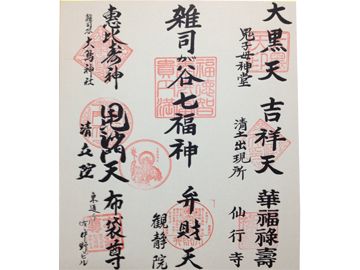 大黒天
鬼子母神堂
吉祥天
清土出現所
華福禄寿
仙行寺
雑司が谷七福神
弁財天
観静院
恵比寿神
雑司が谷 大鳥神社
毘沙門天
清立院
布袋尊